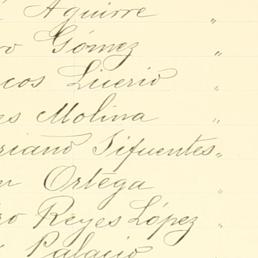 Aguirre "
Gómez "
cos Licerio "
es Molina "
riano Sifuentes "
n Ortega "
ro Reyes López "
Palacio "